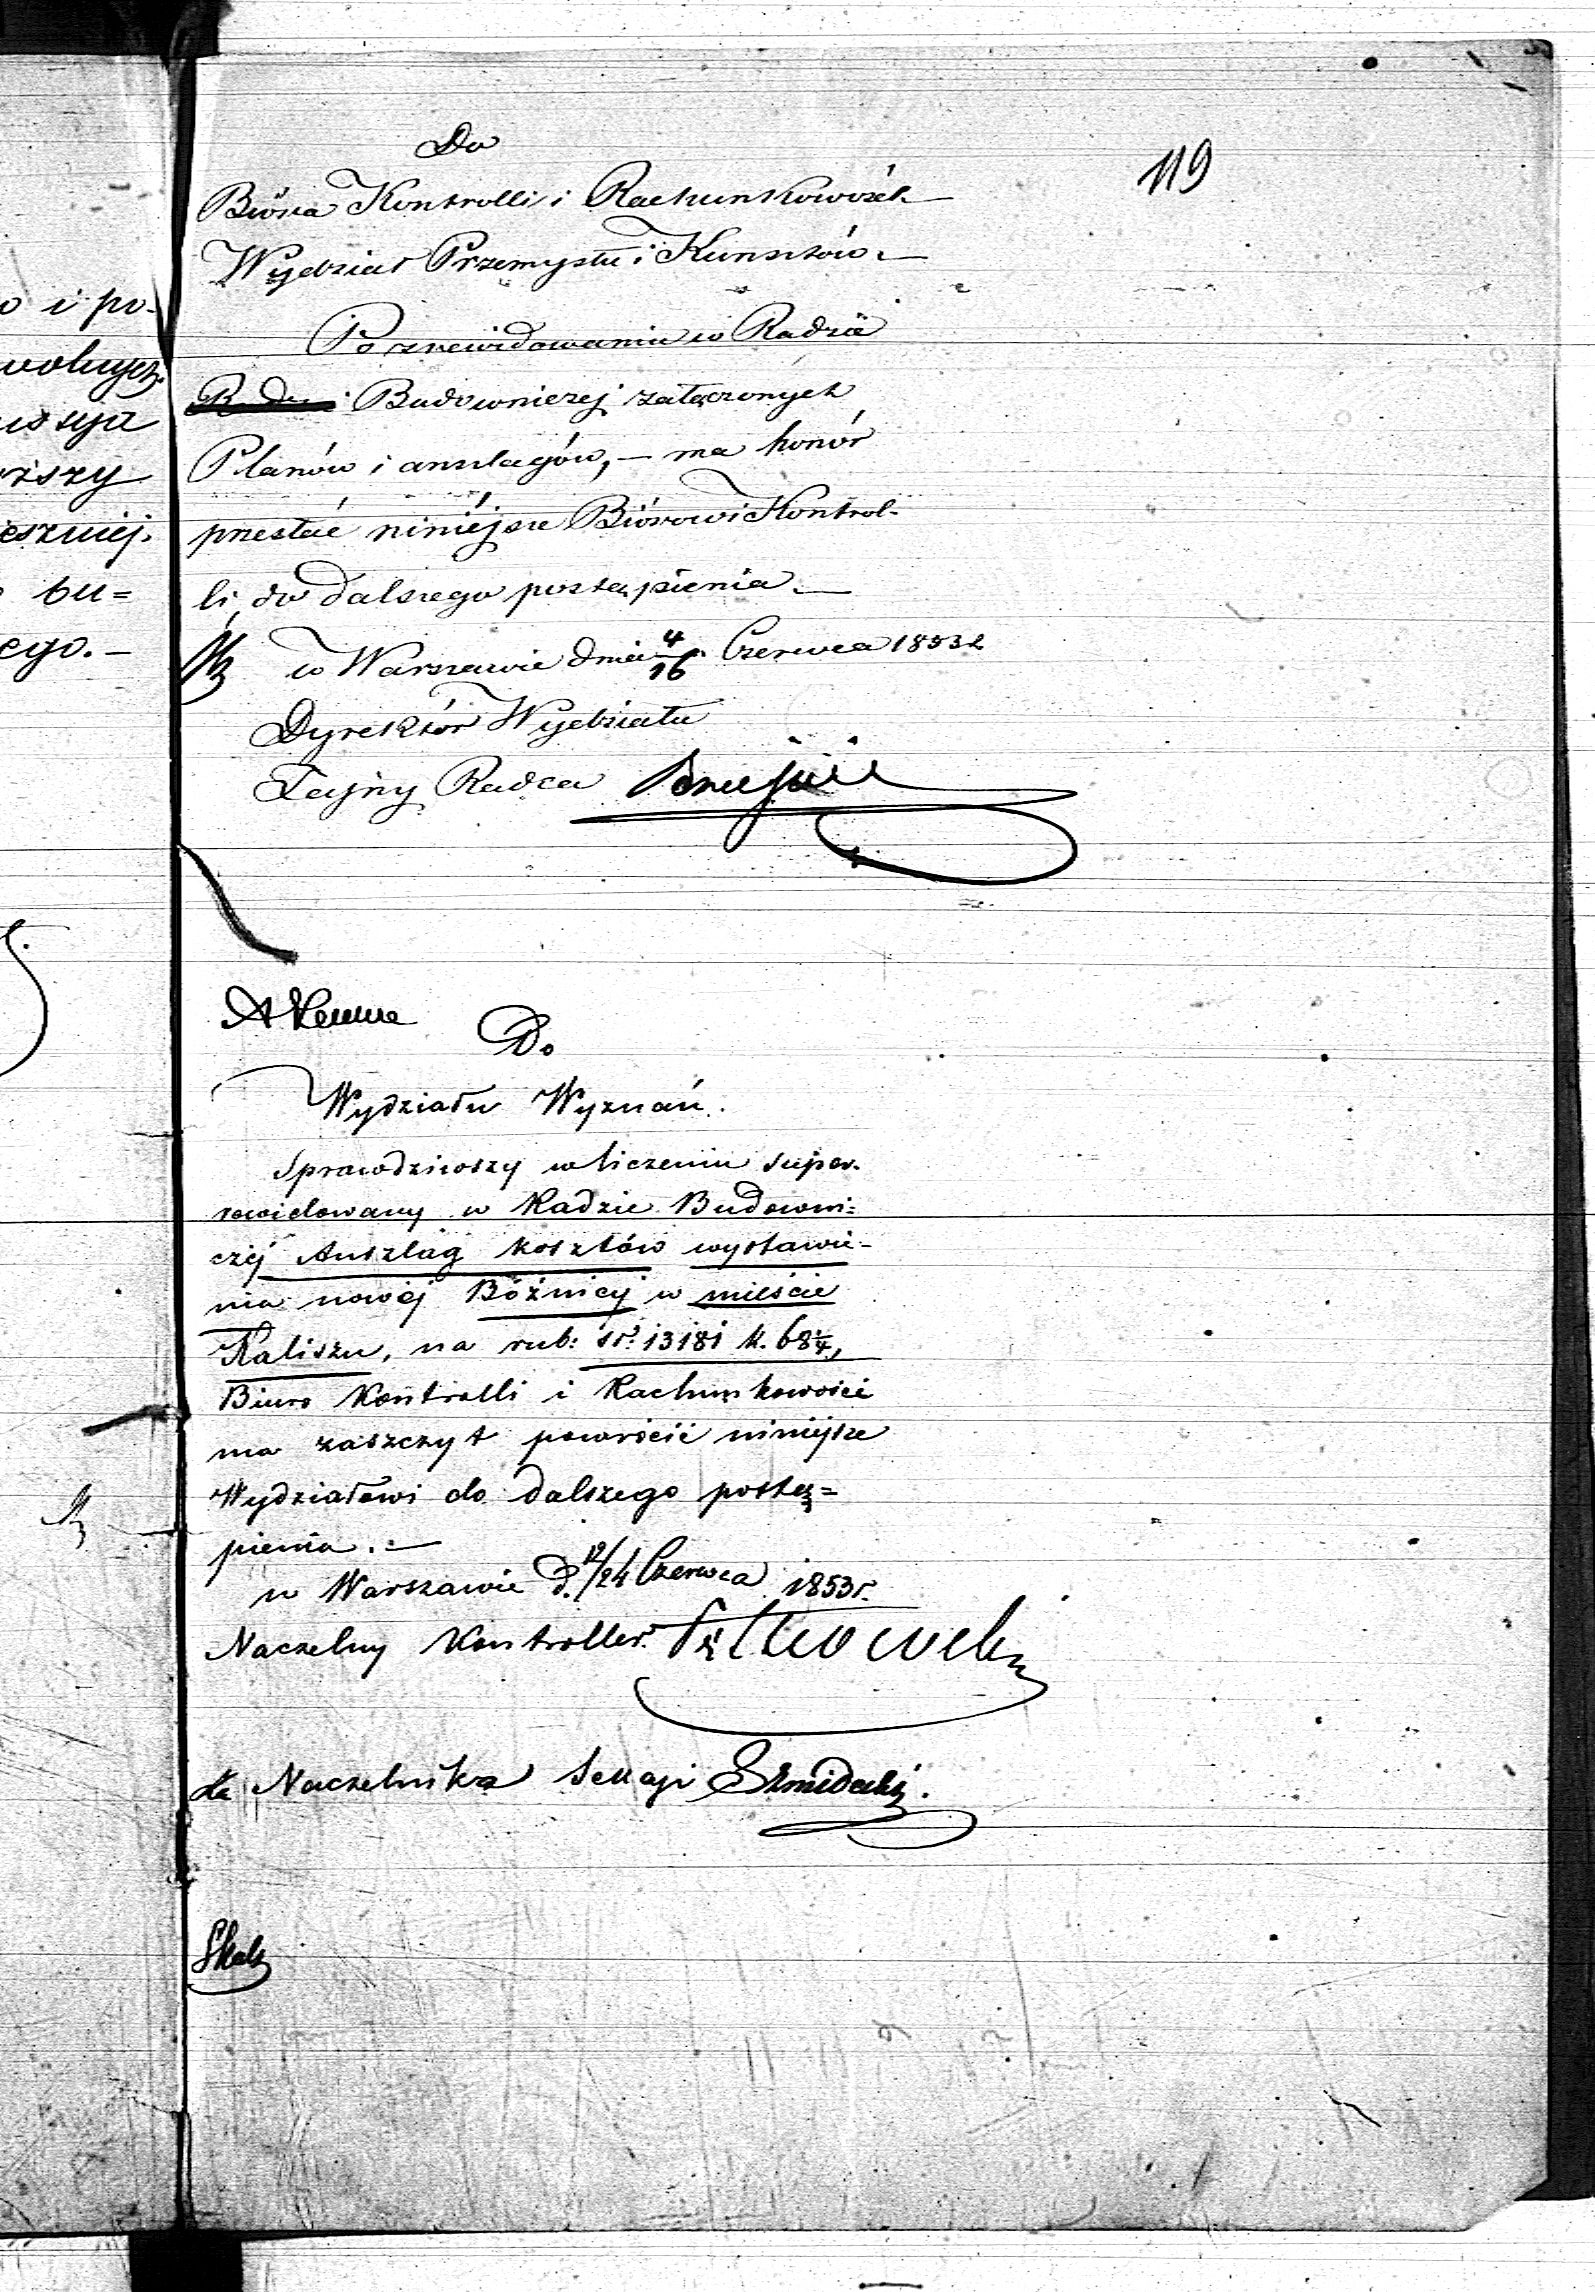 119
Do
Bióra Kontrolli i Rachunkowości
Wydział Przemysłu i Kunsztów.—
Po zrewidowaniu w Radzie
Budowniczej załączonych
Planów i anszlagów, — ma honór
przesłać niniéjsze Biórowi Kontrol-
li, do dalszego postąpienia.—
w Warszawie dnia 4/16 Czerwca 1853 r.
Dyrektór Wydziału
Tajny Radca
Do
Wydziału Wyznań.
Sprawdziwszy w liczeniu super-
rewidowany w Radzie Budowni=
czéj Anszlag kosztów wystawie-
nia nowéj Bóźnicy w mieście
Kaliszu, na rub: sr: 13181 k. 68¼,
Biuro Kontrolli i Rachunkowości
ma zaszczyt powrócić niniéjsze
Wydziałowi do dalszego postą=
pienia.—
w Warszawie d. 12/24 Czerwca 1853 r.
Naczelny Kontroller
za Naczelnika Sekcyi
o i po-
eszniéj.
bu=
ego.—